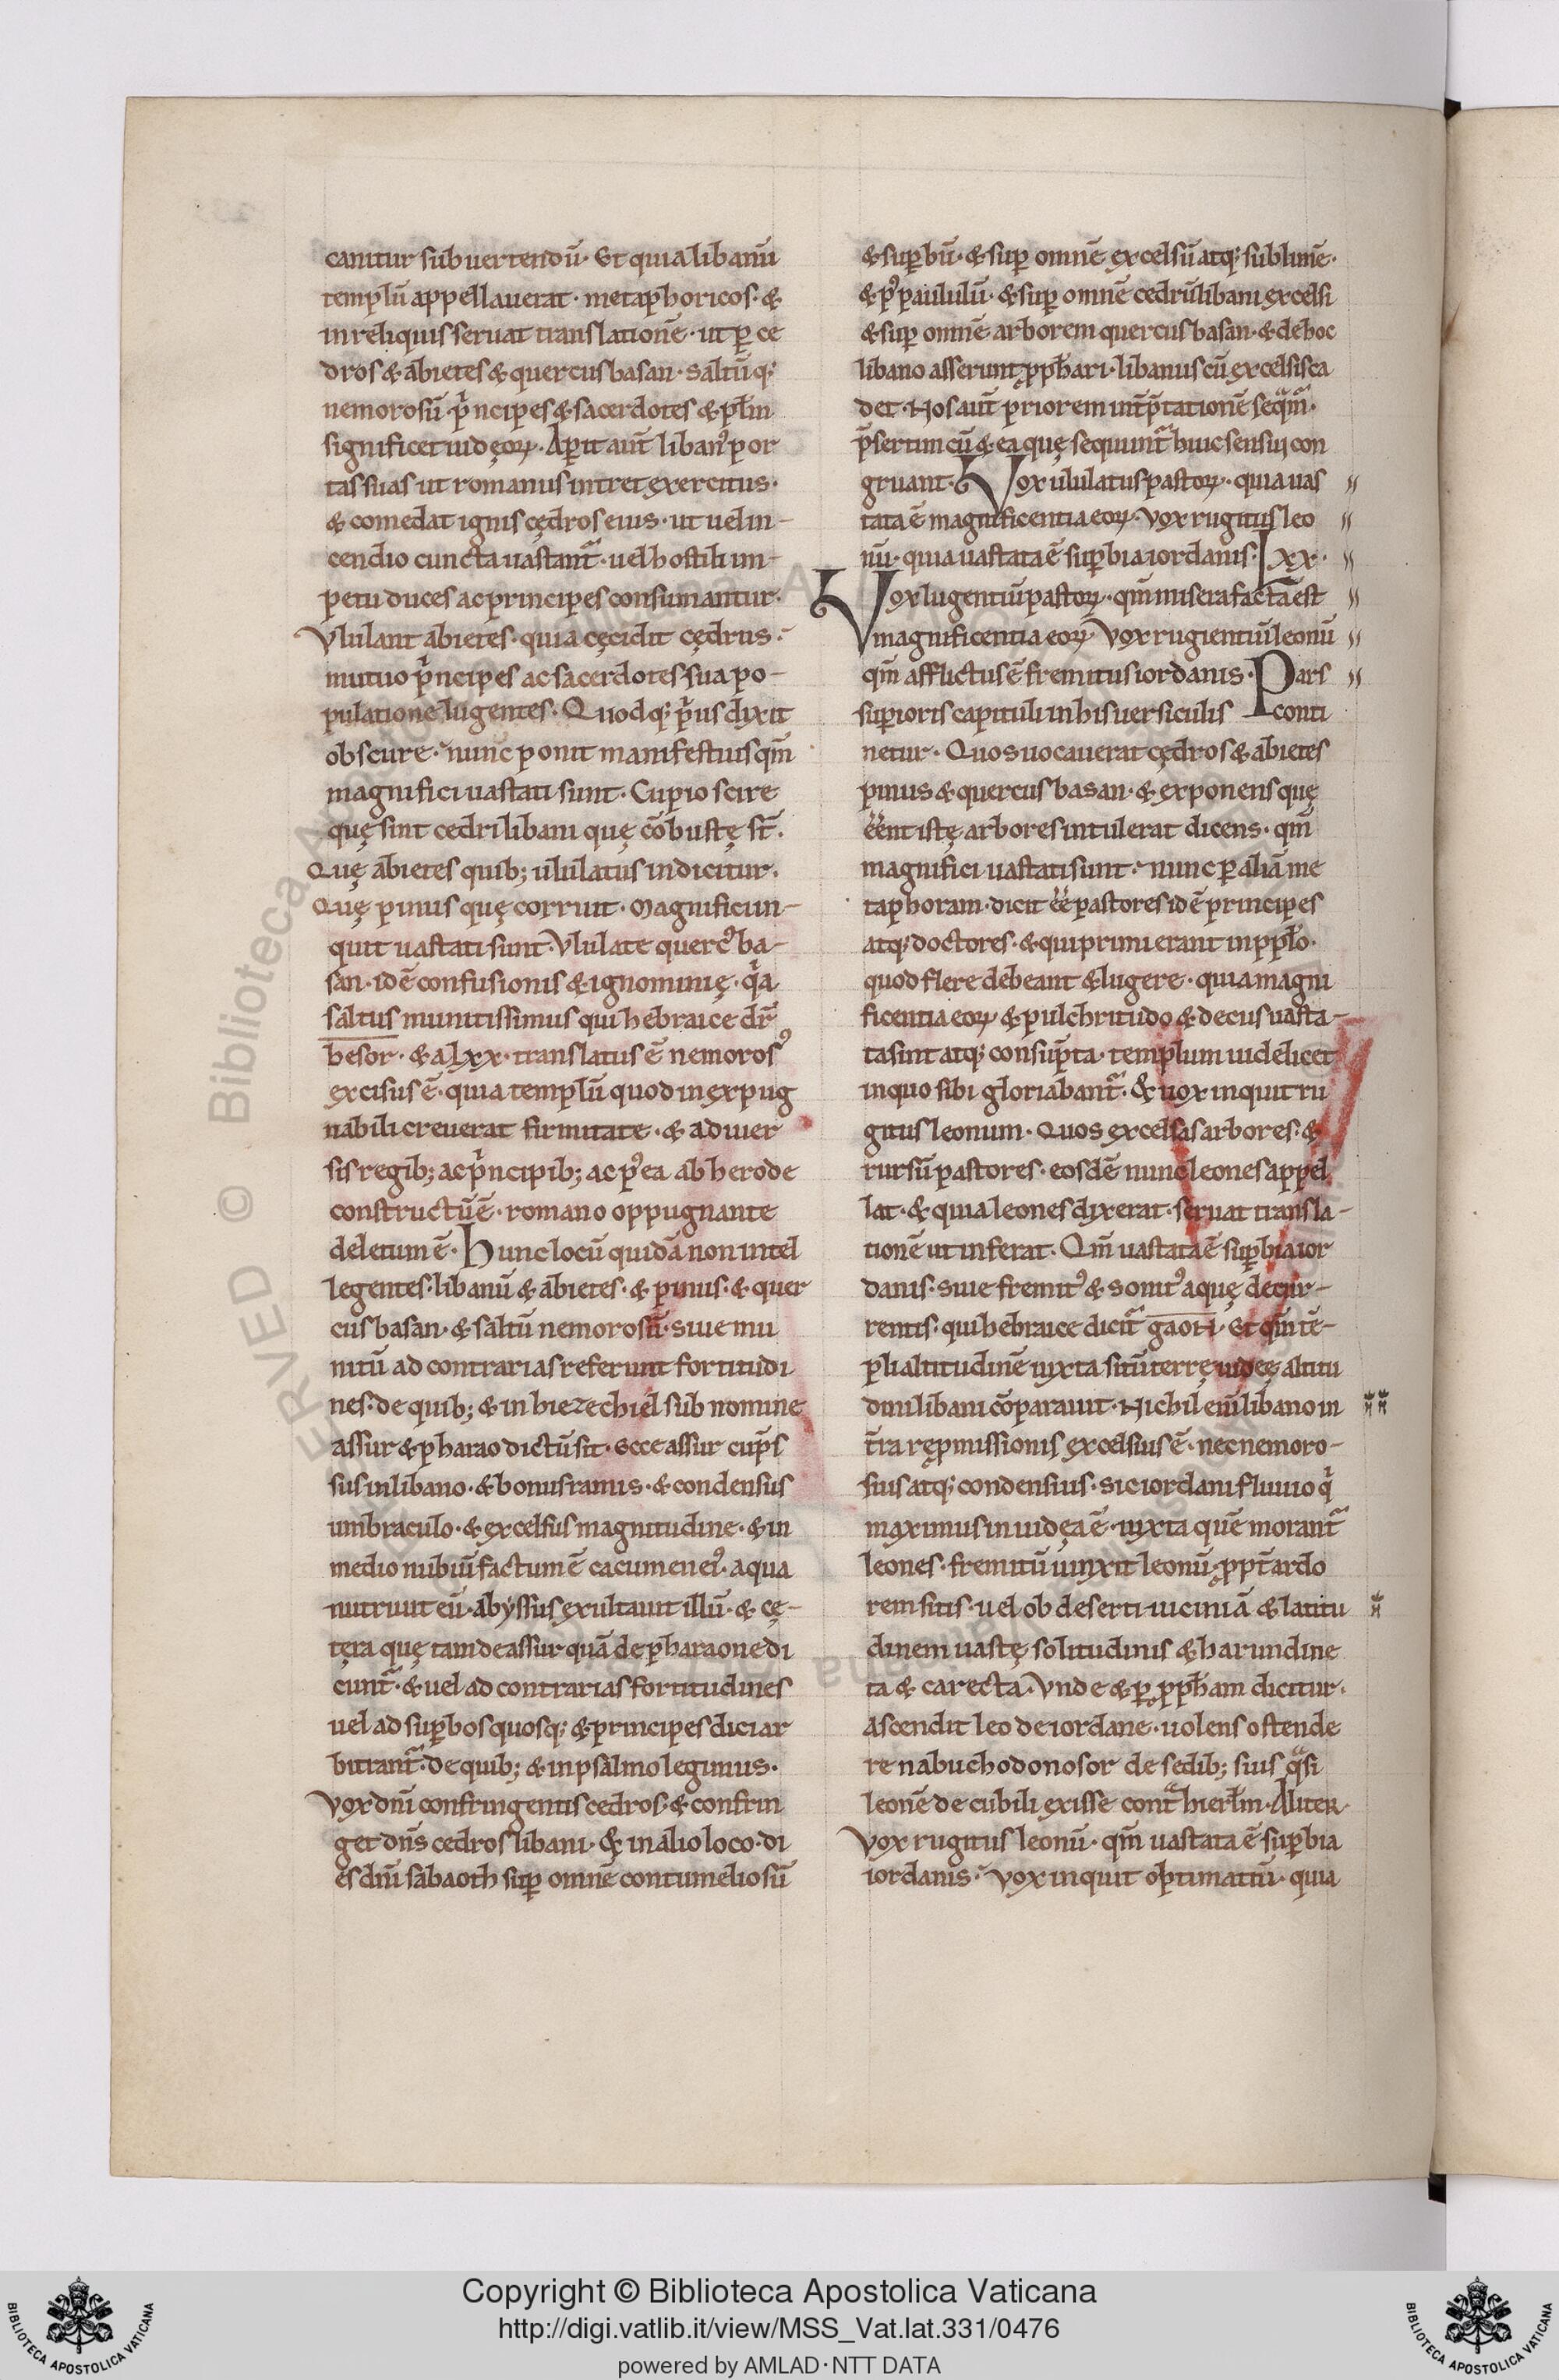 canitur subuertendū. Et quia libanū
templū appellauerat. metaphoricos. &
in reliquis seruat translationē. ut ꝑ ce
dros & abietes & quercus basan. saltūq;
nemorosū. pͥncipes & sacerdotes & pl̄m
significet iudęoꝝ. Aꝑit aūt libanꝰ por
tas suas ut romanus intret exercitus.
& comedat ignis cędros eius. ut uel in-
cendio cuncta uastant᷑. uel hostili im-
petu duces ac principes consumantur.
Vlulant abietes. quia cęcidit cędrus.
mutuo pͥncipes ac sacerdotes sua po-
pulatione lugentes. Quodq; pͥus dixit
obscure. nunc ponit manifestius qm̄
magnifici uastati sunt. Cupio scire
quę sint cedri libani quę cōbustę st̄.
Quę abietes quib; ululatus indicitur.
Quę pinus quę corruit. Magnifici in-
quit uastati sunt. Vlulate quercꝰ ba-
san. idē confusionis & ignominię. qͥa
saltus munitissimus qui hebraice dr̄
besor. & a lxx. translatus ē nemorosꝰ
excisus ē. quia templū quod inexpug
nabili creuerat firmitate. & aduer
sis regib; ac pͥncipib; ac pꝰea ab herode
constructū ē. romano oppugnante
deletum ē. Hunc locū quidā non intel
legentes. libanū & abietes. & pinus. & quer
cus basan. & saltū nemorosū. siue mu
nitū ad contrarias referunt fortitudi
nes. de quib; & in hiezechiel sub nomine
assur & pharao dictū sit. Ecce assur cup̄s
sus in libano. & bonus ramis. & condensus
umbraculo. & excelsus magnitudine. & in
medio nubiū factum ē cacumen eiꝰ. aqua
nutriuit eū. abyssus exultauit illū. & cę-
tęra quę tam de assur quā de pharaone di
cunt᷑. & uel ad contrarias fortitudines
uel ad suꝑbos quosq; & principes dici ar
bitrant᷑. de quib; & in psalmo legimus.
Vox dn̄i confringentis cedros. & confrin
get dn̄s cedros libani. & in alio loco. di
es dn̄i sabaoth suꝑ omnē contumeliosū
& suꝑbū. & suꝑ omnē excelsū atq; sublimē.
& pꝰ paululū. & suꝑ omnē cedrū libani excelsi
& suꝑ omnē arborem quercus basan. & de hoc
libano asserunt ꝓph̄ari. libanus cū excelsis ca
det. Nos aūt priorem int̄p̄tationē seqͣmͣ.
p̄sertim cū & ea quę sequunt᷑ huic sensui con
gruant. Vox ululatus pastoꝝ. quia uas
tata ē magnificentia eoꝝ. Vox rugitus leo
nū. quia uastata ē suꝑbia iordanis. lxx.
Vox lugentiū pastoꝝ. qm̄ misera facta est
magnificentia eoꝝ. Vox rugientiū leonū
qm̄ afflictus ē fremitus iordanis. Pars
superioris capituli in his uersiculis conti
netur. Quos uocauerat cędros & abietes
pinus & quercus basan. & exponens quę
eēnt istę arbores intulerat dicens. qm̄
magnifici uastati sunt. nunc ꝑ aliā me
taphoram. dicit eē pastores idē principes
atq; doctores. & qui primi erant in ppl̄o.
quod flere debeant & lugere. quia magni
ficentia eoꝝ & pulchritudo & decus uasta-
ta sint atq; consūpta. templum uidelicet
in quo sibi gloriabant᷑. & uox inquit ru
gitus leonum. Quos excelsas arbores. &
rursū pastores. eosdē nunc leones appel
lat. & quia leones dixerat. seruat transla-
tionē ut inferat. Qm̄ uastata ē suꝑbia ior
danis. siue fremitꝰ & sonitꝰ aquę decur-
rentis. qui hebraice dicit᷑ gaon. Et qm̄ tē-
pli altitudinē iuxta sitū terrę iudęę altitu
dini libani cōparauit. Nichil enī libano in
t̄ra repmissionis excelsius ē. nec nemoro-
sius atq; condensius. sic iordani fluuio qͥ
maximus in iudęa ē. iuxta quē morant᷑
leones. fremitū iunxit leonū. ꝓpt̄ ardo
rem sitis. uel ob deserti uiciniā & latitu
dinem uastę solitudinis & harundine
ta & carecta. Vnde & ꝑ ꝓph̄am dicitur.
Ascendit leo de iordane. uolens ostende
re nabuchodonosor de sedib; suis qͣsi
leonē de cubili exisse cont͛ hierl̄m. Aliter.
Vox rugitus leonū. qm̄ uastata ē suꝑbia
iordanis. Vox inquit optimatū. quia
Copyright © Biblioteca Apostolica Vaticana
http://digi.vatlib.it/view/MSS_Vat.lat.331/0476
powered by AMLAD·NTT DATA
BIBLIOTECA APOSTOLICA VATICANA
BIBLIOTECA APOSTOLICA VATICANA